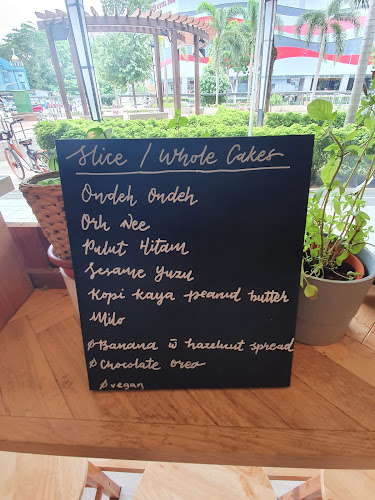 Slice / Whole Cakes
Ondeh Ondeh
Orh Nee
Pulut Hitam
Sesame Yuzu
Kopi kaya peanut butter
Milo
Ø Banana w̄ hazelnut spread
Ø Chocolate oreo
Ø vegan